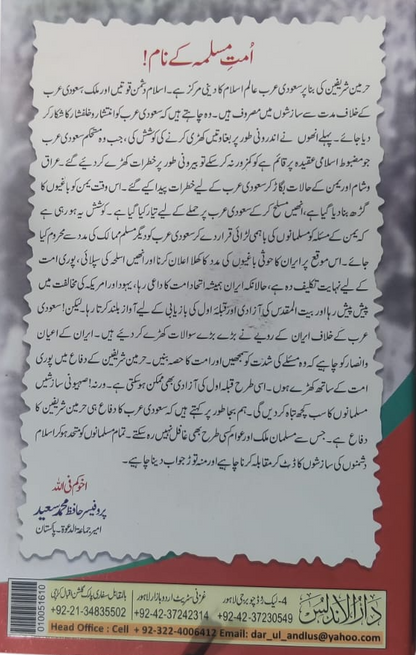 اُمتِ مسلمہ کے نام!
حرمین شریفین کی بنا پر سعودی عرب عالم اسلام کا دینی مرکز ہے۔ اسلام دشمن قوتیں اور ملک سعودی عرب
کے خلاف مدت سے سازشوں میں مصروف ہیں۔ وہ چاہتے ہیں کہ سعودی عرب کو انتشار و خلفشار کا شکار کر
دیا جائے۔ پہلے انھوں نے اندرونی طور پر بغاوتیں کھڑی کرنے کی کوشش کی، جب وہ مستحکم سعودی عرب
جو مضبوط اسلامی عقیدہ پر قائم ہے کو کمزور نہ کر سکے تو بیرونی طور پر خطرات کھڑے کر دیئے گئے۔ عراق
و شام اور یمن کے حالات بگاڑ کر سعودی عرب کے لیے خطرات پیدا کیے گئے۔ اس وقت یمن کو باغیوں کا
گڑھ بنا دیا گیا ہے، انھیں مسلح کر کے سعودی عرب پر حملے کے لیے تیار کیا گیا ہے۔ کوشش یہ ہو رہی ہے
کہ یمن کے مسئلہ کو مسلمانوں کی باہمی لڑائی قرار دے کر سعودی عرب کو دیگر مسلم ممالک کی مدد سے محروم کیا
جائے۔ اس موقع پر ایران کا حوثی باغیوں کی مدد کا کھلا اعلان کرنا اور انھیں اسلحہ کی سپلائی، پوری امت
کے لیے نہایت تکلیف دہ ہے، حالانکہ ایران ہمیشہ اتحاد امت کا داعی رہا، یہود اور امریکہ کی مخالفت میں
پیش پیش رہا اور بیت المقدس کی آزادی اور قبلۂ اول کی بازیابی کے لیے آواز بلند کرتا رہا۔ لیکن! سعودی
عرب کے خلاف ایران کے رویے نے بڑے بڑے سوالات کھڑے کر دیئے ہیں۔ ایران کے اعیان
و انصار کو چاہیے کہ وہ مسئلے کی شدت کو سمجھیں اور امت کا حصہ بنیں۔ حرمین شریفین کے دفاع میں پوری
امت کے ساتھ کھڑے ہوں۔ اسی طرح قبلہ اول کی آزادی بھی ممکن ہو سکتی ہے۔ ورنہ! صہیونی سازشیں
مسلمانوں کا سب کچھ تباہ کر دیں گی۔ ہم بجا طور پر کہتے ہیں کہ سعودی عرب کا دفاع ہی حرمین شریفین کا
دفاع ہے۔ جس سے مسلمان ملک اور عوام کسی طرح بھی غافل نہیں رہ سکتے۔ تمام مسلمانوں کو متحد ہو کر اسلام
دشمنوں کی سازشوں کا ڈٹ کر مقابلہ کرنا چاہیے اور منہ توڑ جواب دینا چاہیے۔
اخوکم فی اللہ
پروفیسر حافظ محمد سعید
امیر جماعۃ الدعوۃ۔ پاکستان
دار الاندلس
4- لیک روڈ چوبرجی لاہور
+92-42-37230549
غزنی سٹریٹ اردو بازار لاہور
+92-42-37242314
بالمقابل سفاری پارک گلشن اقبال کراچی
+92-21-34835502
Head Office : Cell + 92-322-4006412 Email: dar_ul_andlus@yahoo.com
010051610